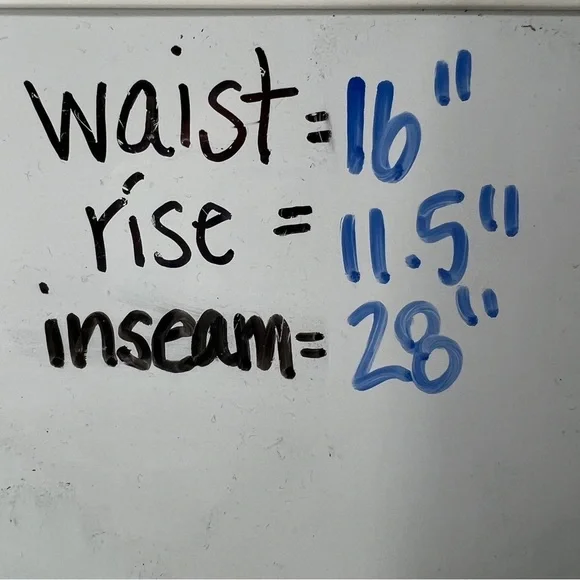 waist = 16"
rise = 11.5"
inseam = 28"